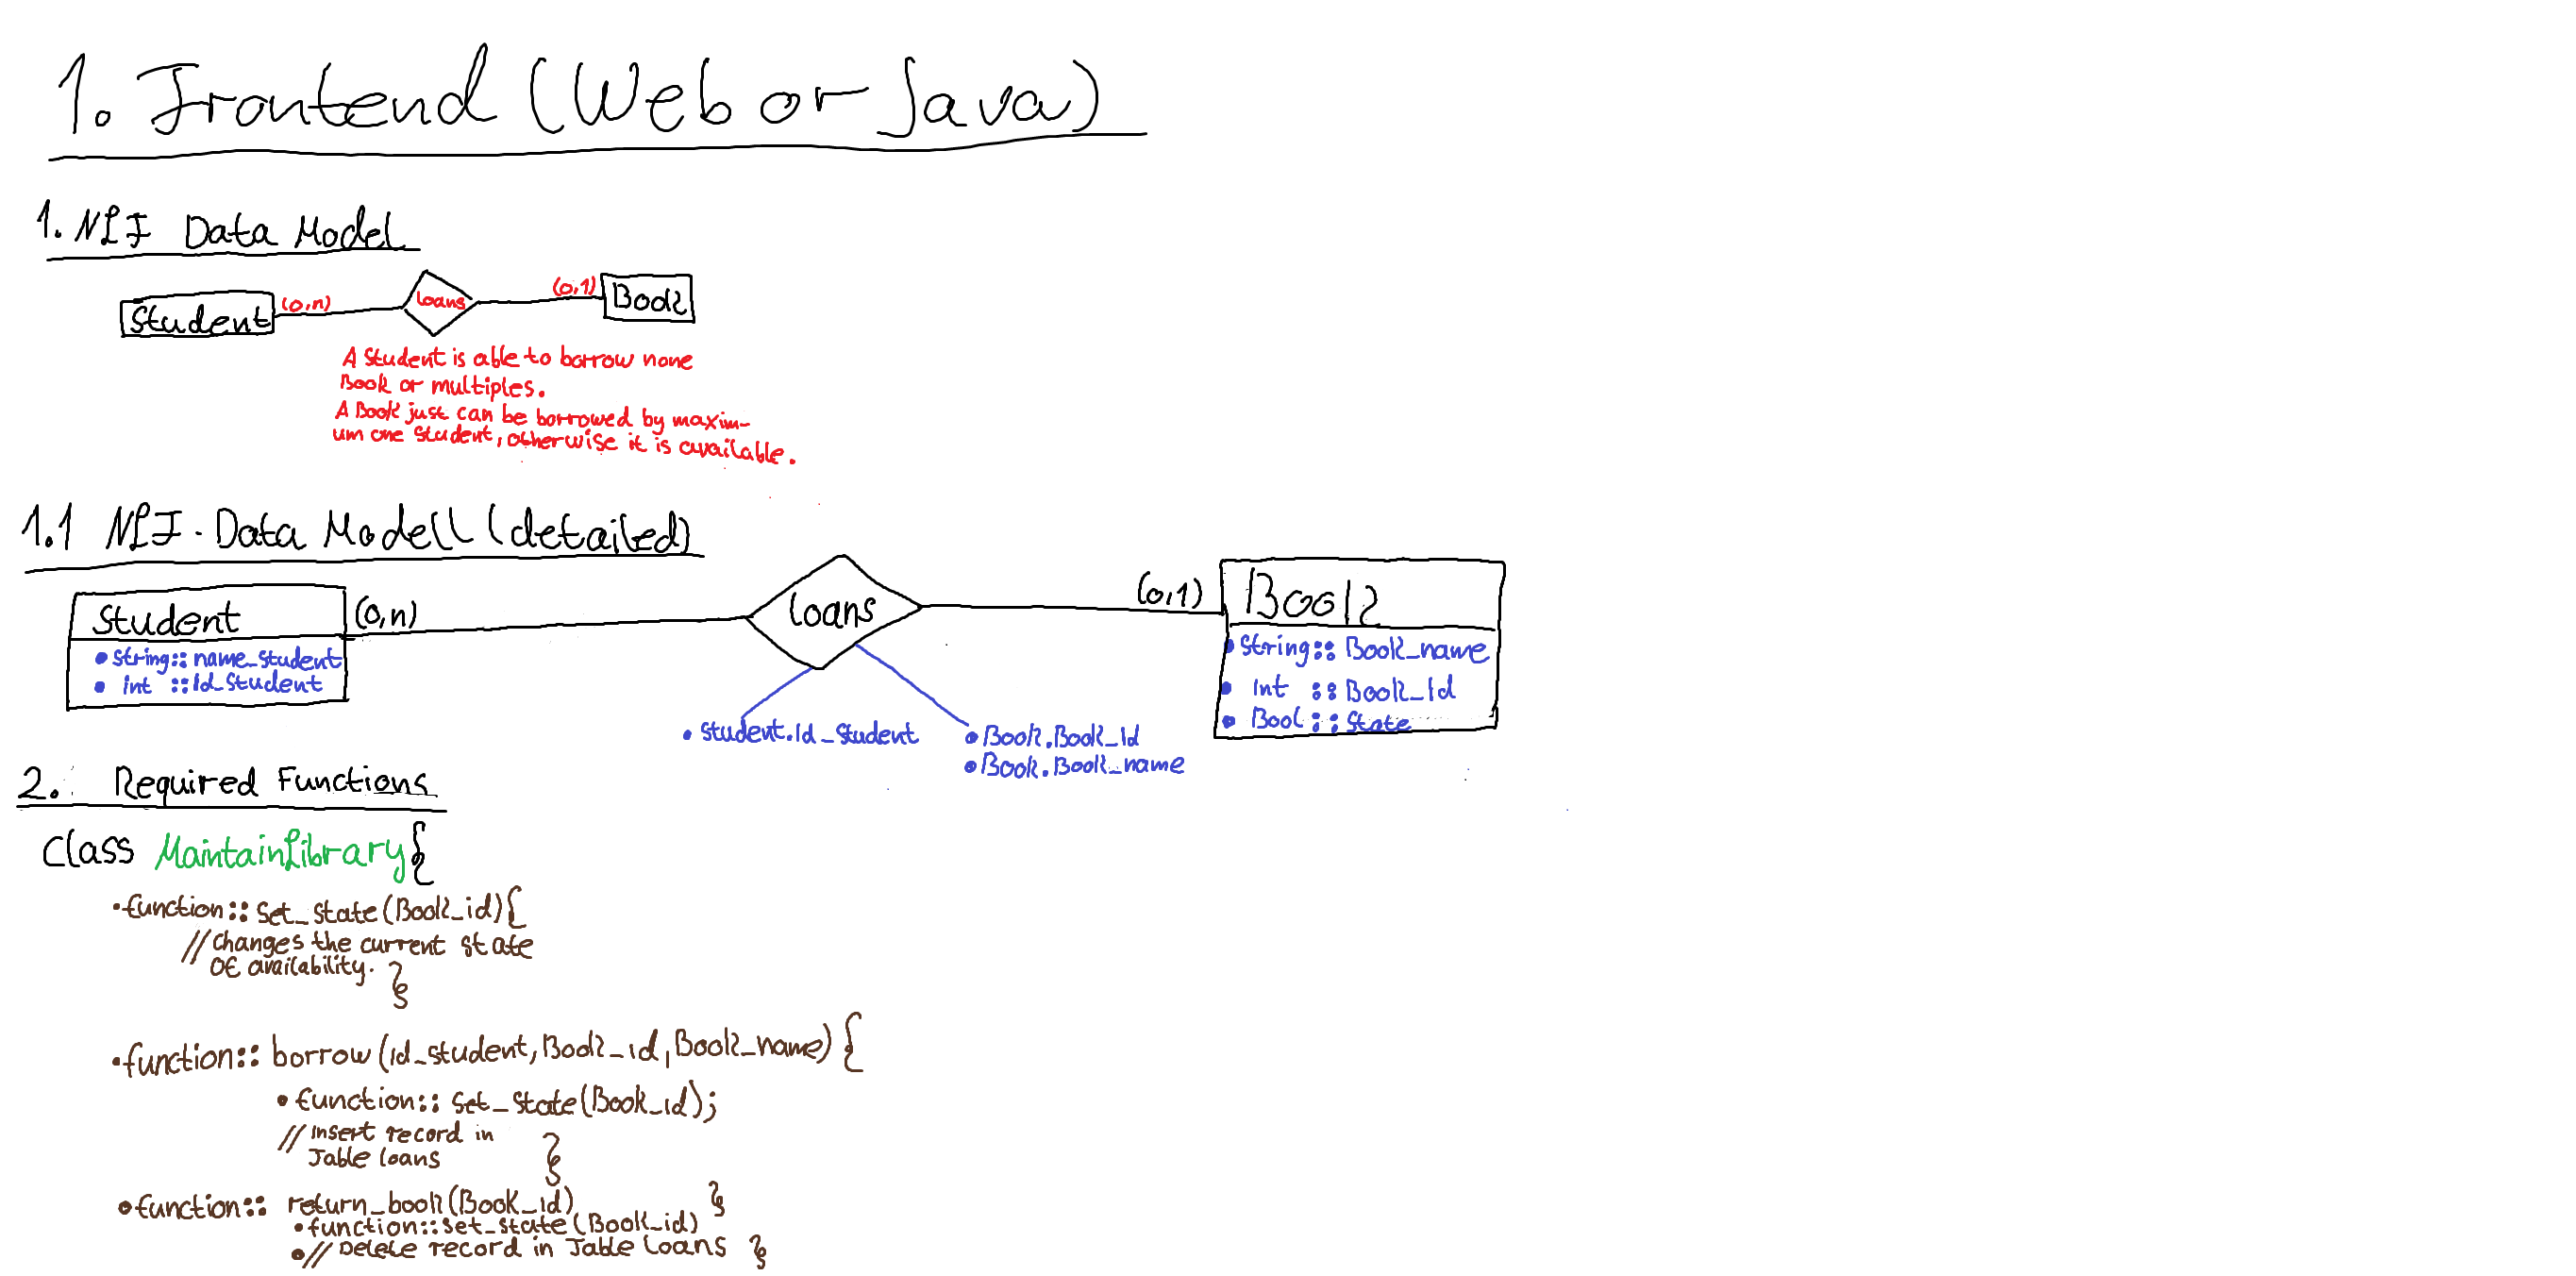 1. Frontend (Web or Java)
1. NF Data Model
Student (0,n) loans (0,1) Book
A Student is able to borrow none
Book or multiples.
A Book just can be borrowed by maxim-
um one Student, otherwise it is available.
1.1 NF-Data Modell (detailed)
Student (0,n) loans (0,1) Book
• String:: name_student
• int :: Id_Student
• String:: Book_name
• Int :: Book_Id
• Bool :: State
• Student.Id_Student
• Book.Book_Id
• Book.Book_name
2. Required Functions
Class MaintainLibrary{
• function:: Set_State(Book_id){
// Changes the current state
of availability. }
• function:: borrow (Id_student, Book_id, Book_name) {
• function:: Set_State(Book_id);
// Insert record in
Table loans }
• function:: return_book(Book_id) }
• function::Set_State(Book_id)
• // Delete record in Table Loans }